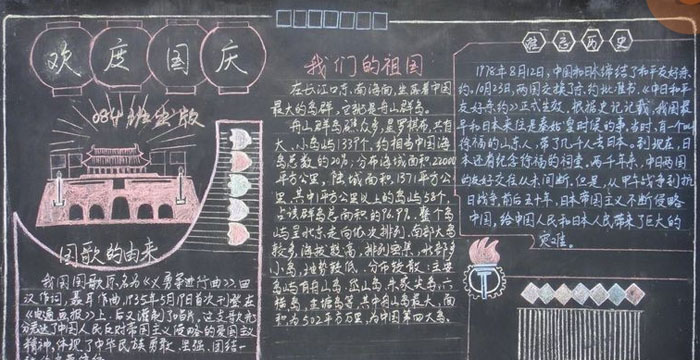 欢度国庆
084班出版
国歌的由来
我国国歌原名为《义勇军进行曲》，田
汉作词，聂耳作曲，1935年5月9日首次刊登在
《电通画报》上，后又灌制了唱片，这支歌充
分表达了中国人民反对帝国主义侵略的爱国主义
精神，体现了中华民族勇敢、坚强、团结一
我们的祖国
在长江口东南海面，坐落着中国
最大的岛群，它就是舟山群岛。
舟山群岛岛礁众多，星罗棋布，共有
大、小岛屿1339个，约相当中国海
岛总数的20%，分布海域面积22000
平方公里，陆域面积1371平方公
里。其中1平方公里以上的岛屿58个，
占该群岛总面积的96.9%。整个岛
屿呈北东走向依次排列。南部大岛
较多，海拔较高，排列密集，北部多
小岛，地势较低，分布较散；主要
岛屿有舟山岛、岱山岛、朱家尖岛、六
横岛、金塘岛等，其中舟山岛最大，面
积为502平方公里，为中国第四大岛。
历史
1978年8月12日，中国和日本缔结了和平友好条
约。10月23日，两国交换了条约批准书，《中日和平
友好条约》正式生效。根据史记记载，我国最
早和日本来往是秦始皇时候的事。当时，有个叫
徐福的山东人，带了几千人去日本。到现在，日
本还有纪念徐福的祠堂。两千年来，中日两国
的友好交往从未间断。但是，从甲午战争到抗
日战争，前后五十年，日本帝国主义不断侵略
中国，给中国人民和日本人民带来了巨大的
灾难。